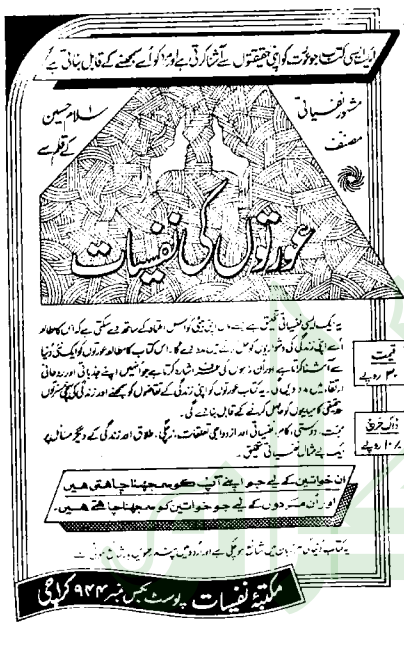 ایک ایسی کتاب جو عورت کو اپنی حقیقتوں سے آشنا کرتی ہے اور مرد کو اُسے سمجھنے کے قابل بناتی ہے
مشہور نفسیاتی
مصنف
سلام حسین
کے قلم سے
عورتوں کی نفسیات
یہ ایک ایسی نفسیاتی تخلیق ہے جسے ماں اپنی بیٹی کو اس اعتماد کے ساتھ دے سکتی ہے کہ اس کا مطالعہ
اُسے اپنی زندگی کی دشواریوں کو حل کرنے میں مدد دے گا۔ اس کتاب کا مطالعہ عورتوں کو ایک نئی دنیا
سے آشنا کراتا ہے اور ان راہوں کی طرف اشارہ کرتا ہے جو انہیں اپنے جذباتی اور روحانی
ارتقا میں مدد دیں گی۔ یہ کتاب عورتوں کو اپنی زندگی کے تقاضوں کو سمجھنے اور زندگی کی سچی مسرتوں
حقیقی کامیابیوں کو حاصل کرنے کے قابل بنائے گی۔
محبت، دوستی، کام، نفسیاتی اور ازدواجی تعلقات، زچگی، طلاق اور زندگی کے دیگر مسائل پر
ایک بے مثال نفسیاتی تخلیق۔
قیمت
۳۰ روپے
ڈاک خرچ
۱۰/ روپے
ان خواتین کے لیے جو اپنے آپ کو سمجھنا چاھتی ھیں
اور اُن مردوں کے لیے جو خواتین کو سمجھنا چاھتے ھیں۔
یہ کتاب دنیا کی زبان میں شائع ہو چکی ہے اور اردو میں
مکتبۂ نفسیات پوسٹ بکس نمبر ۹۴۴ کراچی